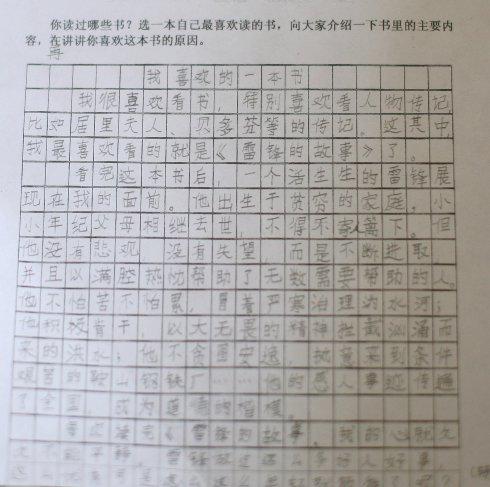 你读过哪些书？选一本自己最喜欢读的书，向大家介绍一下书里的主要内
容，在讲讲你喜欢这本书的原因。
再
我喜欢的一本书
我很喜欢看书，特别喜欢看人物传记，
比如居里夫人、贝多芬等的传记。这其中，
我最喜欢看的就是《雷锋的故事》了。
看完这本书后，一个活生生的雷锋展
现在我的面前。他出生于贫穷的家庭，小
小年纪父母相继去世，不得不寄人篱下。但
他没有悲观，没有失望，而是不断进取，
并且以满腔热忱帮助了无数需要帮助的人。
他不怕苦不怕累，冒着严寒治理沩水河；
他积极肯干，以大无畏的精神拦截汹涌而
来的洪水；他不贪图安逸，执意来到条件
艰苦的鞍山钢铁厂……他的感人事迹传遍
了全国，成为道德的楷模。
每次读完《雷锋的故事》，我的心就久
久不能平静，雷锋做过那么多好人好事，